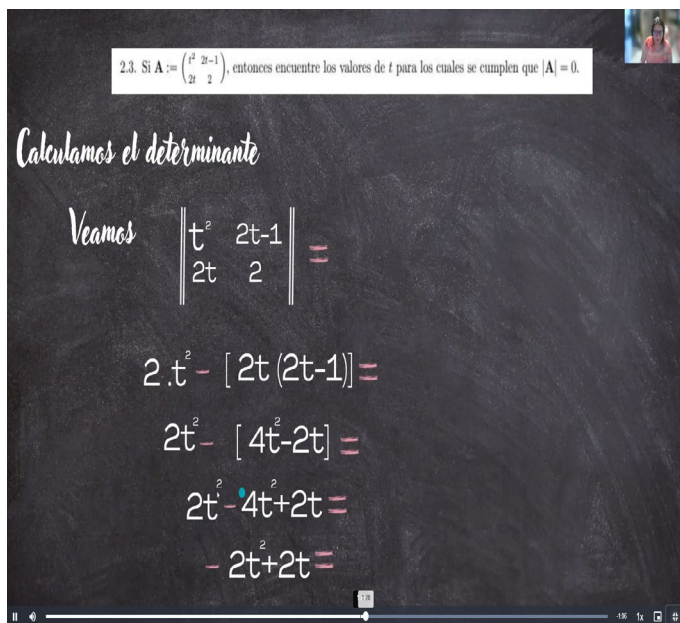 2.3. Si A := (t² 2t−1
2t 2), entonces encuentre los valores de t para los cuales se cumplen que |A| = 0.
Calculamos el determinante
Veamos |t² 2t-1
2t 2| =
2.t² - [2t (2t-1)] =
2t² - [4t²-2t] =
2t² - 4t²+2t =
- 2t²+2t =
1x